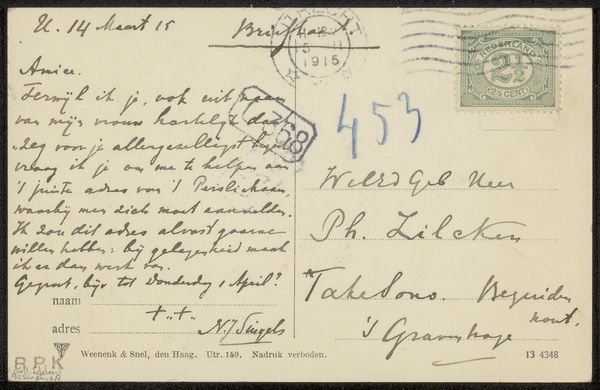 U. 14 Maart 15
Briefkaart
UTRECHT
1915
NEDERLAND
2½
2½ CENT
368
453
Amice.
Terwijl ik je, ook uit naam
van mijn vrouw hartelijk dank
zeg voor je allergezelligst
vraag ik je om me te helpen aan
't juiste adres van 't
waarbij men zich moet aanmelden.
Ik zou dit adres alvast gaarne
willen hebben: bij gelegenheid maak
ik er dan werk van.
Gegroet, tot Donderdag 1 April?
naam
adres
N.J. Singels
WelEd Geb Heer
Ph. Zilcken
Bezuiden
hout.
's Gravenhage
R P K
Weenenk & Snel, den Haag. Utr. 159. Nadruk verboden.
13 4348